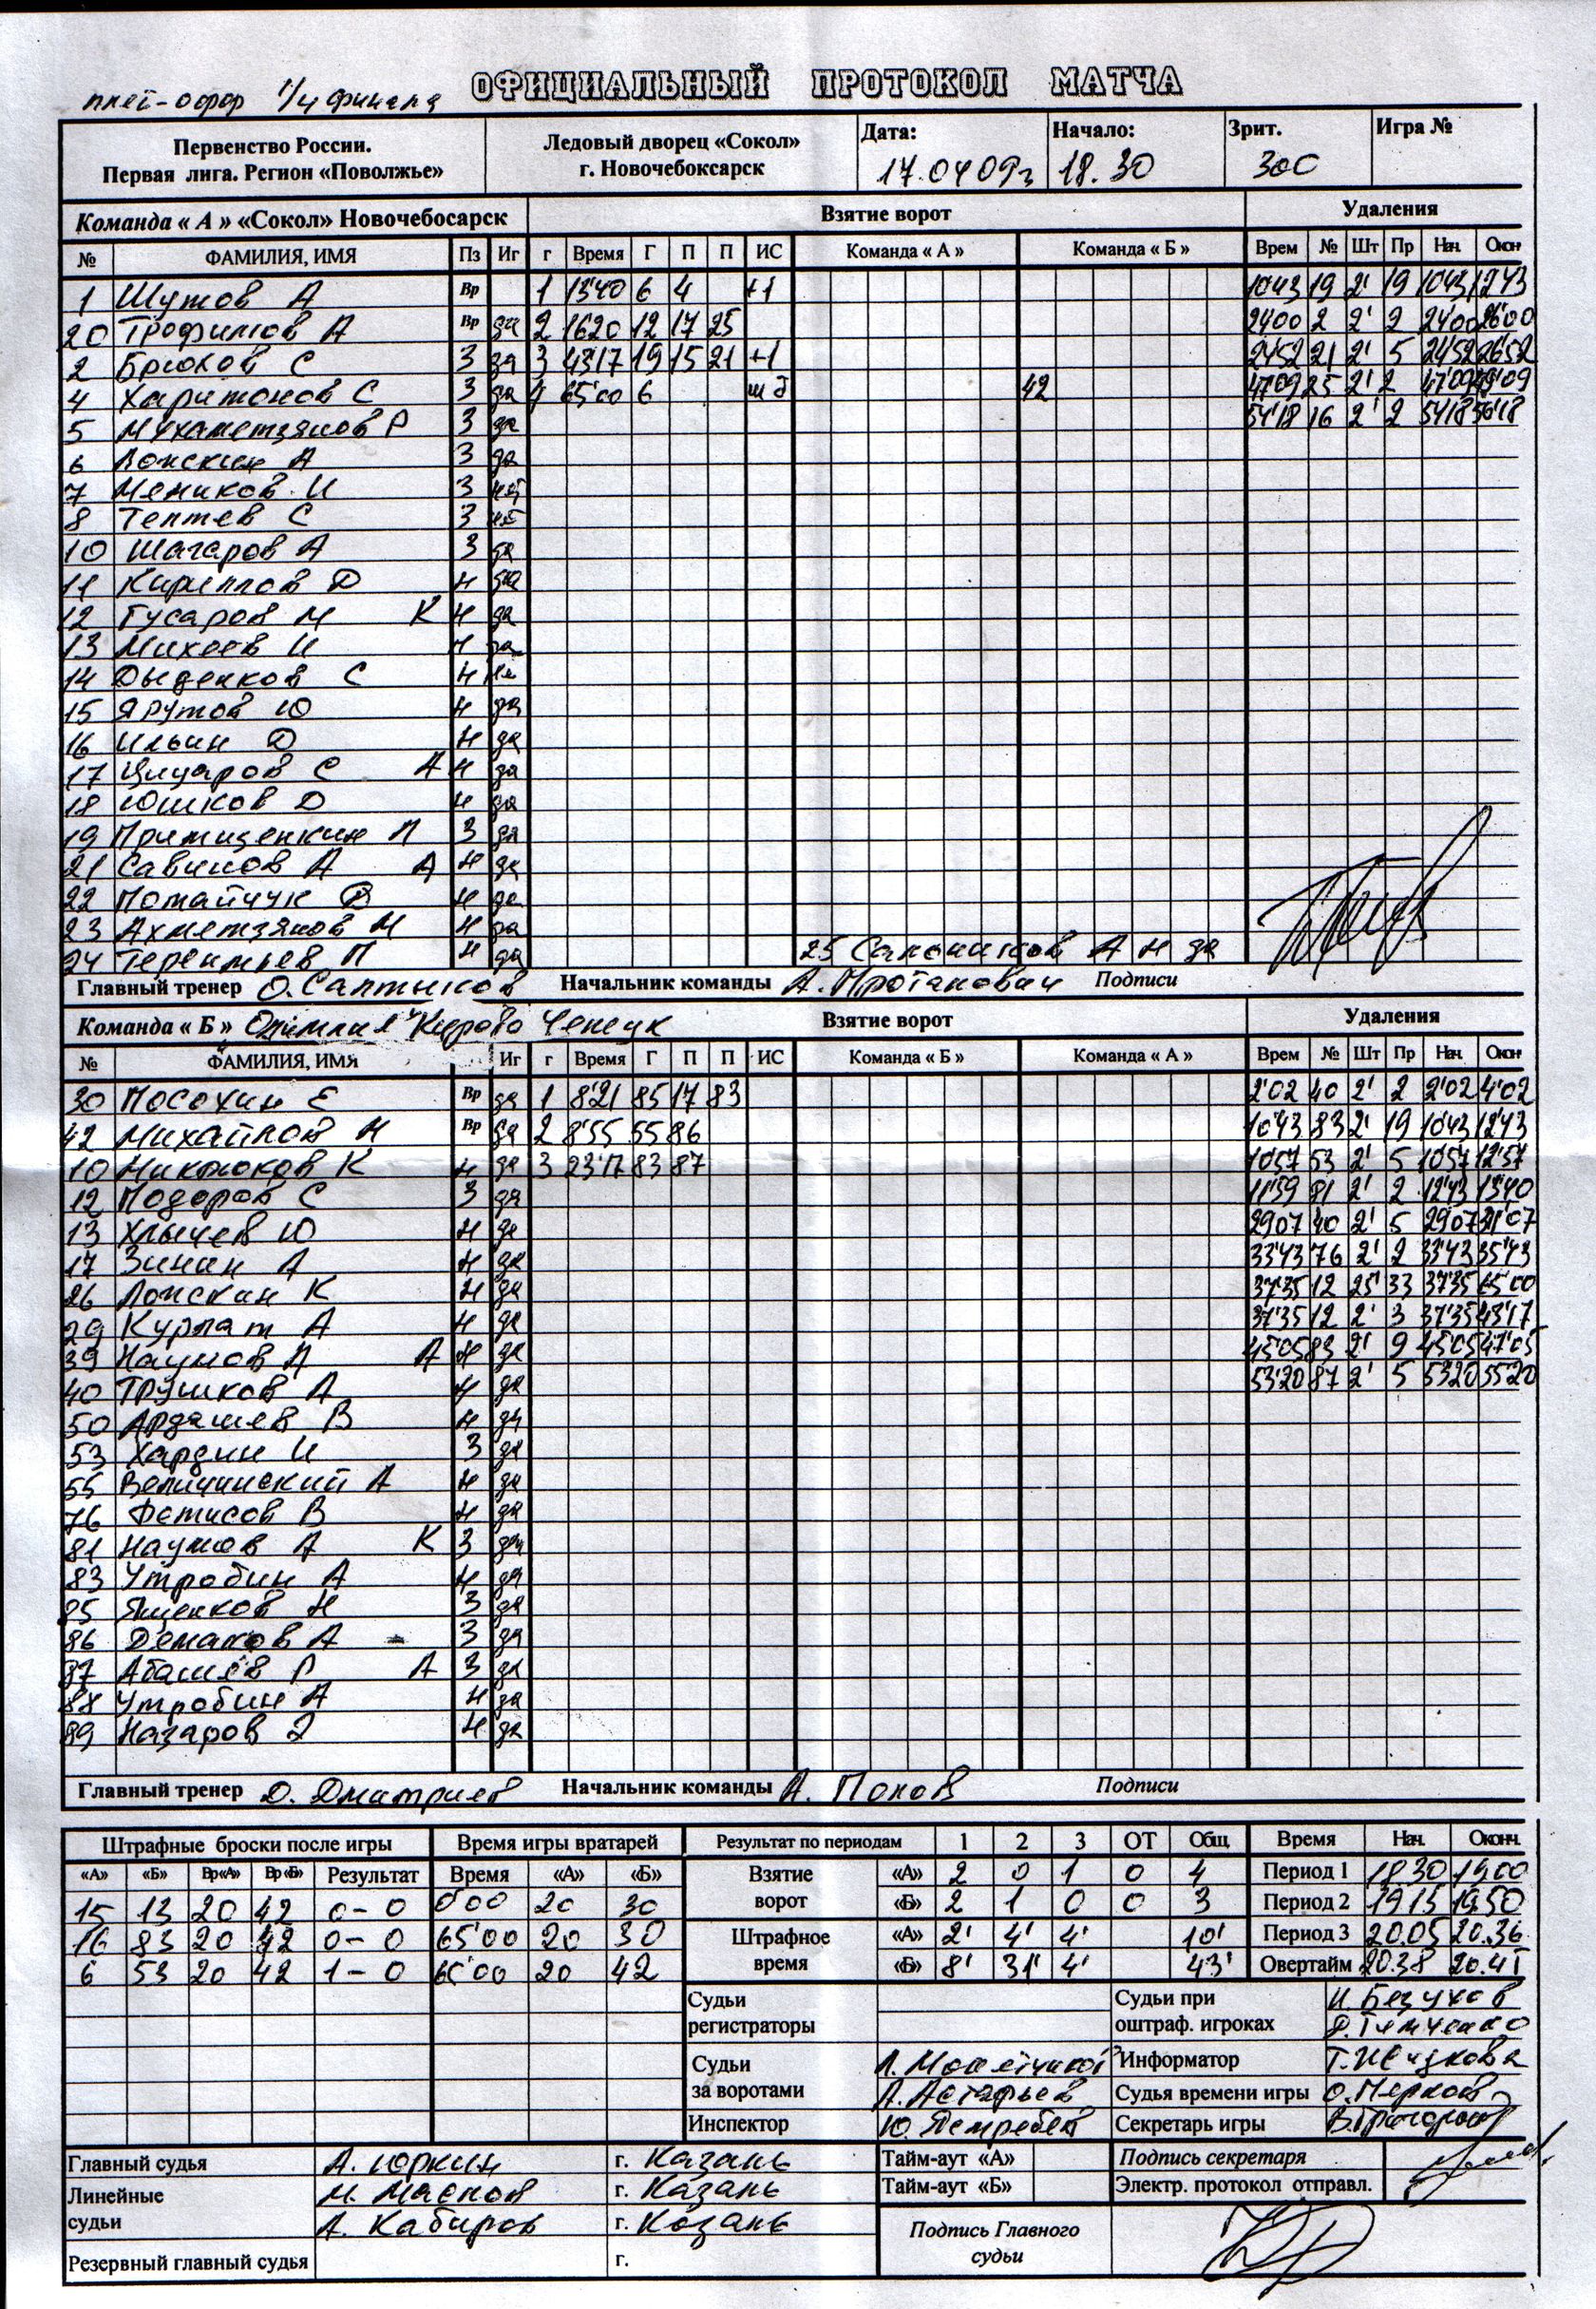 плей-офф 1/4 финала
ОФИЦИАЛЬНЫЙ ПРОТОКОЛ МАТЧА
Первенство России. Первая лига. Регион «Поволжье»
Ледовый дворец «Сокол» г. Новочебоксарск
Дата: 17.04 09г Начало: 18.30 Зрит. 300 Игра №
Команда « А » «Сокол» Новочебосарск Взятие ворот Удаления
№ ФАМИЛИЯ, ИМЯ Пз Иг г Время Г П П ИС Команда « А » Команда « Б » Врем № Шт Пр Нач. Окон
1 Шутов А Вр 1 13'40 6 4 +1 10'43 19 2' 19 10'43 12'43
20 Трофимов А Вр да 2 16'20 12 17 25 24'00 2 2' 2 24'00 26'00
2 Брюхов С З да 3 43'17 19 15 21 +1 24'52 21 2' 5 24'52 26'52
4 Харитонов С З да 4 65'00 6 шб 42 47'09 25 2' 2 47'09 49'09
5 Мухаметзянов Р З да 54'18 16 2' 2 54'18 56'18
6 Лонскин А З да
7 Меников И З
8 Тептев С З
10 Шагаров А З да
11 Кириллов Д Н да
12 Гусаров М К Н да
13 Михеев И Н да
14 Дыденков С Н
15 Ярутов Ю Н да
16 Ильин Д Н да
17 Цицаров С А Н да
18 Юшков Д Н да
19 З да
21 Савинов А А Н да
22 Потайчук В Н да
23 Ахметзянов М Н да
24 Терентьев П Н да 25 Сапожников А Н да
Главный тренер О. Салтыков Начальник команды А. Протанович Подписи
Команда « Б » Олимпия" Кирово Чепецк Взятие ворот Удаления
№ ФАМИЛИЯ, ИМЯ Иг г Время Г П П ИС Команда « Б » Команда « А » Врем № Шт Пр Нач. Окон
30 Посохин Е Вр да 1 8'21 85 17 83 2'02 40 2' 2 2'02 4'02
42 Михайлов Н Вр да 2 8'55 55 86 10'43 83 2' 19 10'43 12'43
10 Микрюков К Н да 3 23'17 83 87 10'57 53 2' 5 10'57 12'57
12 Подоров С З да 11'59 81 2' 2 12'43 13'40
13 Хлычев Ю Н да 29'07 40 2' 5 29'07 31'07
17 Зинин А Н да 33'43 76 2' 2 33'43 35'43
26 Лонскин К Н да 37'35 12 25' 33 37'35 65'00
29 Курлат А Н да 37'35 12 2' 3 37'35 43'17
39 Наумов А А Н да 45'05 83 2' 9 45'05 47'05
40 Трушков А Н да 53'20 87 2' 5 53'20 55'20
50 Ардашев В Н да
53 Хардин И З да
55 Величинский А Н да
76 Фетисов В Н да
81 Наумов А К З да
83 Утробин А Н да
85 Ященков Н З да
86 Демаков А З да
87 Абашев Р А З да
88 Утробин А Н да
89 Назаров Э Н да
Главный тренер Д. Дмитриев Начальник команды А. Попов Подписи
Штрафные броски после игры Время игры вратарей Результат по периодам 1 2 3 ОТ Общ. Время Нач. Оконч.
«А» «Б» Вр«А» Вр«Б» Результат Время «А» «Б» Взятие ворот «А» 2 0 1 0 4 Период 1 18.30 19.00
15 13 20 42 0-0 0'00 20 30 «Б» 2 1 0 0 3 Период 2 19.15 19.50
16 83 20 42 0-0 65'00 20 30 Штрафное время «А» 2' 4' 4' 10' Период 3 20.05 20.36
6 53 20 42 1-0 65'00 20 42 «Б» 8' 31' 4' 43' Овертайм 20.38 20.45
Судьи регистраторы Судьи при оштраф. игроках И. Безухов
Р. Тимченко
Судьи за воротами Информатор
А. Астафьев Судья времени игры О. Перков
Инспектор Ю. Ястребов Секретарь игры В. Григорьев
Главный судья А. Юркин г. Казань Тайм-аут «А» Подпись секретаря
Линейные судьи М. Маслов г. Казань Тайм-аут «Б» Электр. протокол отправл.
А. Кабиров г. Казань Подпись Главного судьи
Резервный главный судья г.